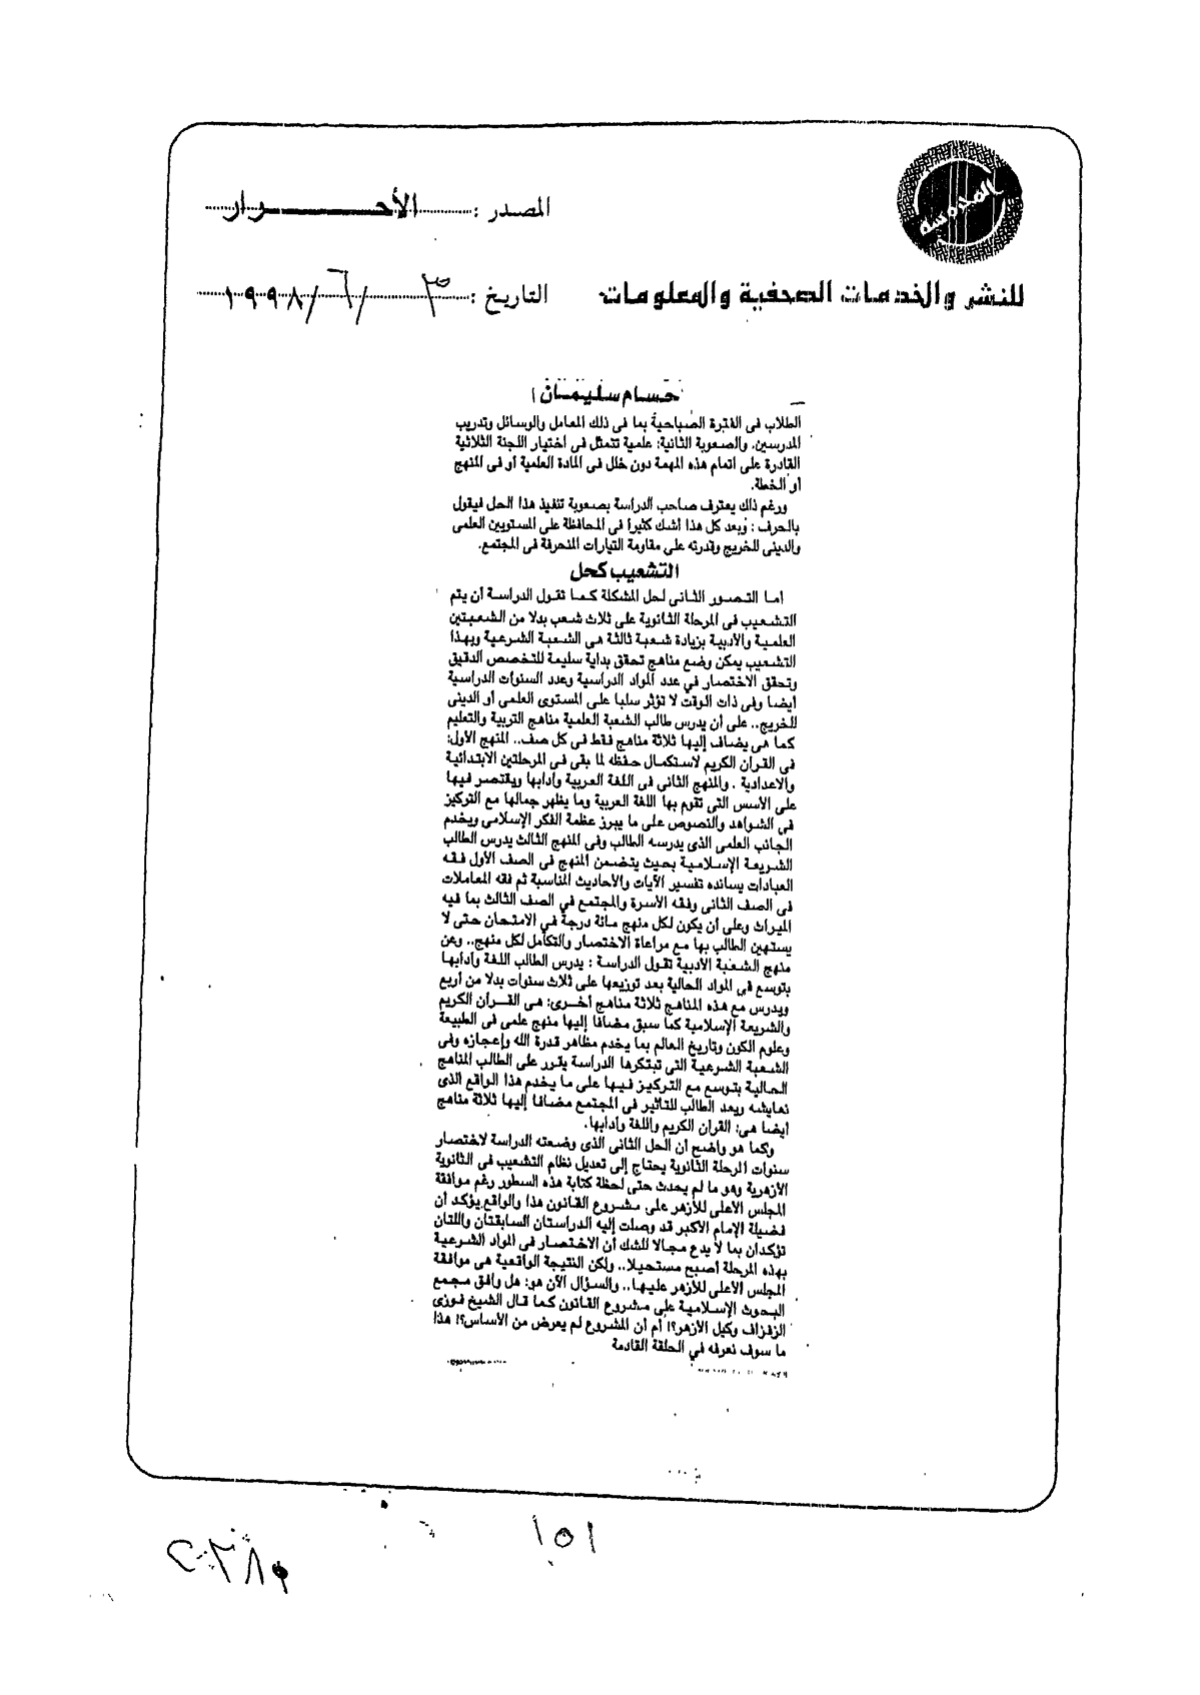 المصدر : الأحـــرار
للنشر والخدمات الصحفية والمعلومات
التاريخ : ٣ / ٦ / ١٩٩٨
حسام سليمان
الطلاب فى الفترة الصباحية بما فى ذلك المعامل والوسائل وتدريب
المدرسين. والصعوبة الثانية: علمية تتمثل فى اختيار اللجنة الثلاثية
القادرة على اتمام هذه المهمة دون خلل فى المادة العلمية أو فى المنهج
أو الخطة.
ورغم ذلك يعترف صاحب الدراسة بصعوبة تنفيذ هذا الحل فيقول
بالحرف : وبعد كل هذا أشك كثيرا فى المحافظة على المستويين العلمى
والدينى للخريج وقدرته على مقاومة التيارات المنحرفة فى المجتمع.
التشعيب كحل
اما التصور الثانى لحل المشكلة كما تقول الدراسة أن يتم
التشعيب فى المرحلة الثانوية على ثلاث شعب بدلا من الشعبتين
العلمية والأدبية بزيادة شعبة ثالثة هى الشعبة الشرعية وبهذا
التشعيب يمكن وضع مناهج تحقق بداية سليمة للتخصص الدقيق
وتحقق الاختصار في عدد المواد الدراسية وعدد السنوات الدراسية
أيضا وفى ذات الوقت لا تؤثر سلبا على المستوى العلمى أو الدينى
للخريج.. على أن يدرس طالب الشعبة العلمية مناهج التربية والتعليم
كما هى يضاف إليها ثلاثة مناهج فقط فى كل صف.. المنهج الأول:
فى القرآن الكريم لاستكمال حفظه لما بقى فى المرحلتين الابتدائية
والاعدادية . والمنهج الثانى فى اللغة العربية وآدابها ويقتصر فيها
على الأسس التى تقوم بها اللغة العربية وما يظهر جمالها مع التركيز
فى الشواهد والنصوص على ما يبرز عظمة الفكر الإسلامى ويخدم
الجانب العلمى الذى يدرسه الطالب وفى المنهج الثالث يدرس الطالب
الشريعة الإسلامية بحيث يتضمن المنهج فى الصف الأول فقه
العبادات يسانده تفسير الآيات والأحاديث المناسبة ثم فقه المعاملات
فى الصف الثانى وفقه الأسرة والمجتمع في الصف الثالث بما فيه
الميراث وعلى أن يكون لكل منهج مائة درجة في الامتحان حتى لا
يستهين الطالب بها مع مراعاة الاختصار والتكامل لكل منهج.. وعن
منهج الشعبة الأدبية تقول الدراسة : يدرس الطالب اللغة وآدابها
بتوسع في المواد الحالية بعد توزيعها على ثلاث سنوات بدلا من أربع
ويدرس مع هذه المناهج ثلاثة مناهج أخرى: هى القرآن الكريم
والشريعة الإسلامية كما سبق مضافا إليها منهج علمى فى الطبيعة
وعلوم الكون وتاريخ العالم بما يخدم مظاهر قدرة الله وإعجازه وفى
الشعبة الشرعية التى تبتكرها الدراسة يقرر على الطالب المناهج
الحالية بتوسع مع التركيز فيها على ما يخدم هذا الواقع الذى
نعايشه ويعد الطالب للتأثير فى المجتمع مضافا إليها ثلاثة مناهج
أيضا هى: القرآن الكريم واللغة وآدابها.
وكما هو واضح أن الحل الثانى الذى وضعته الدراسة لاختصار
سنوات المرحلة الثانوية يحتاج إلى تعديل نظام التشعيب فى الثانوية
الأزهرية وهو ما لم يحدث حتى لحظة كتابة هذه السطور رغم موافقة
المجلس الأعلى للأزهر على مشروع القانون هذا والواقع يؤكد أن
فضيلة الإمام الأكبر قد وصلت إليه الدراستان السابقتان واللتان
تؤكدان بما لا يدع مجالا للشك أن الاختصار فى المواد الشرعية
بهذه المرحلة أصبح مستحيلا.. ولكن النتيجة الواقعية هى موافقة
المجلس الأعلى للأزهر عليها.. والسؤال الآن هو: هل وافق مجمع
البحوث الإسلامية على مشروع القانون كما قال الشيخ فوزى
الزفزاف وكيل الأزهر؟! أم أن المشروع لم يعرض من الأساس؟! هذا
ما سوف نعرفه في الحلقة القادمة
١٥١